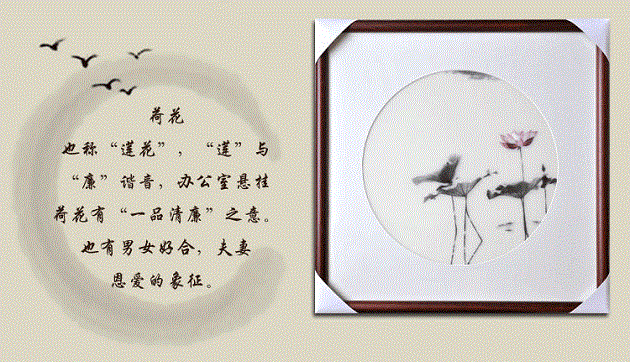 荷花
也称“莲花”，“莲”与
“廉”谐音，办公室悬挂
荷花有“一品清廉”之意。
也有男女好合，夫妻
恩爱的象征。